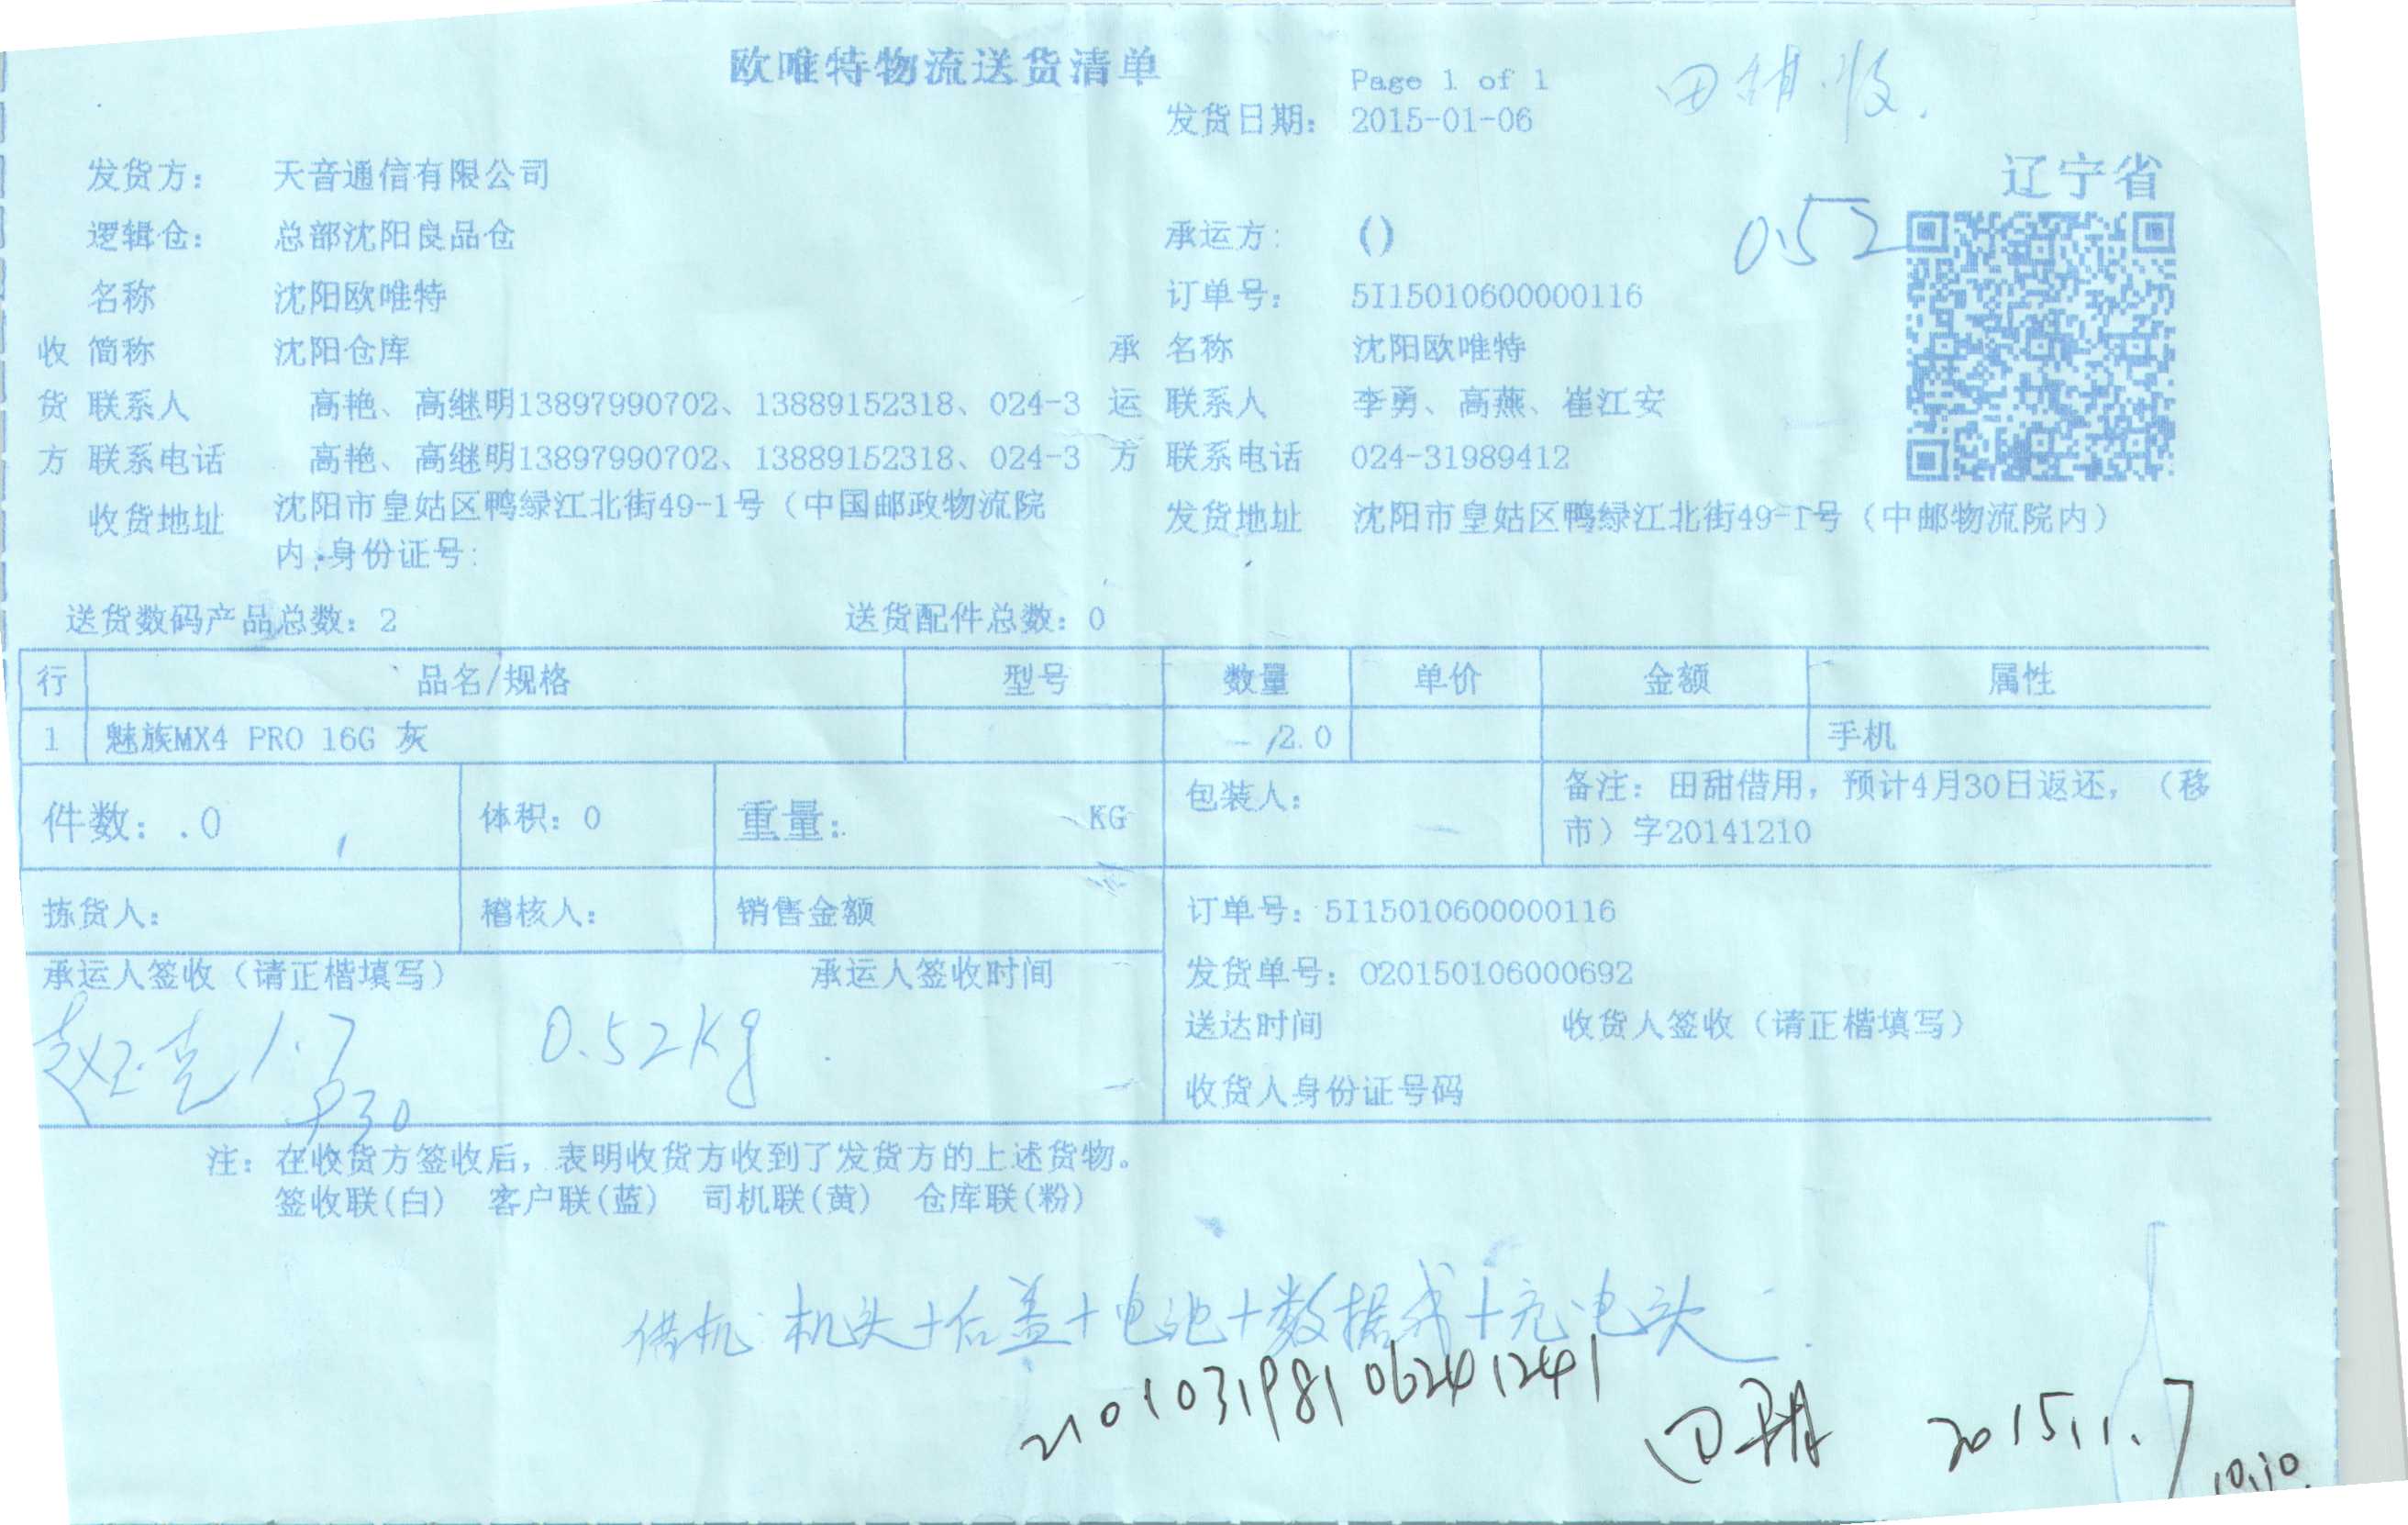 欧唯特物流送货清单
Page 1 of 1
田甜收.
发货日期： 2015-01-06
发货方： 天音通信有限公司
辽宁省
逻辑仓： 总部沈阳良品仓
承运方： ()
0.52
名称 沈阳欧唯特
订单号： 5I15010600000116
收 简称 沈阳仓库
承 名称 沈阳欧唯特
货 联系人 高艳、高继明13897990702、13889152318、024-3
运 联系人 李勇、高燕、崔江安
方 联系电话 高艳、高继明13897990702、13889152318、024-3
方 联系电话 024-31989412
收货地址 沈阳市皇姑区鸭绿江北街49-1号（中国邮政物流院
内;身份证号:
发货地址 沈阳市皇姑区鸭绿江北街49-1号（中邮物流院内）
送货数码产品总数：2 送货配件总数：0
行 品名/规格 型号 数量 单价 金额 属性
1 魅族MX4 PRO 16G 灰 2.0 手机
件数：.0 体积：0 重量： KG 包装人：
备注：田甜借用，预计4月30日返还，（移
市）字20141210
拣货人： 稽核人： 销售金额
订单号：5I15010600000116
承运人签收（请正楷填写） 承运人签收时间
发货单号：020150106000692
1.7 0.52Kg
930
送达时间 收货人签收（请正楷填写）
收货人身份证号码
注：在收货方签收后，表明收货方收到了发货方的上述货物。
签收联(白) 客户联(蓝) 司机联(黄) 仓库联(粉)
借机: 机头+后盖+电池+数据线+充电头
210103198106241241
田甜 2015.1.7
10.10